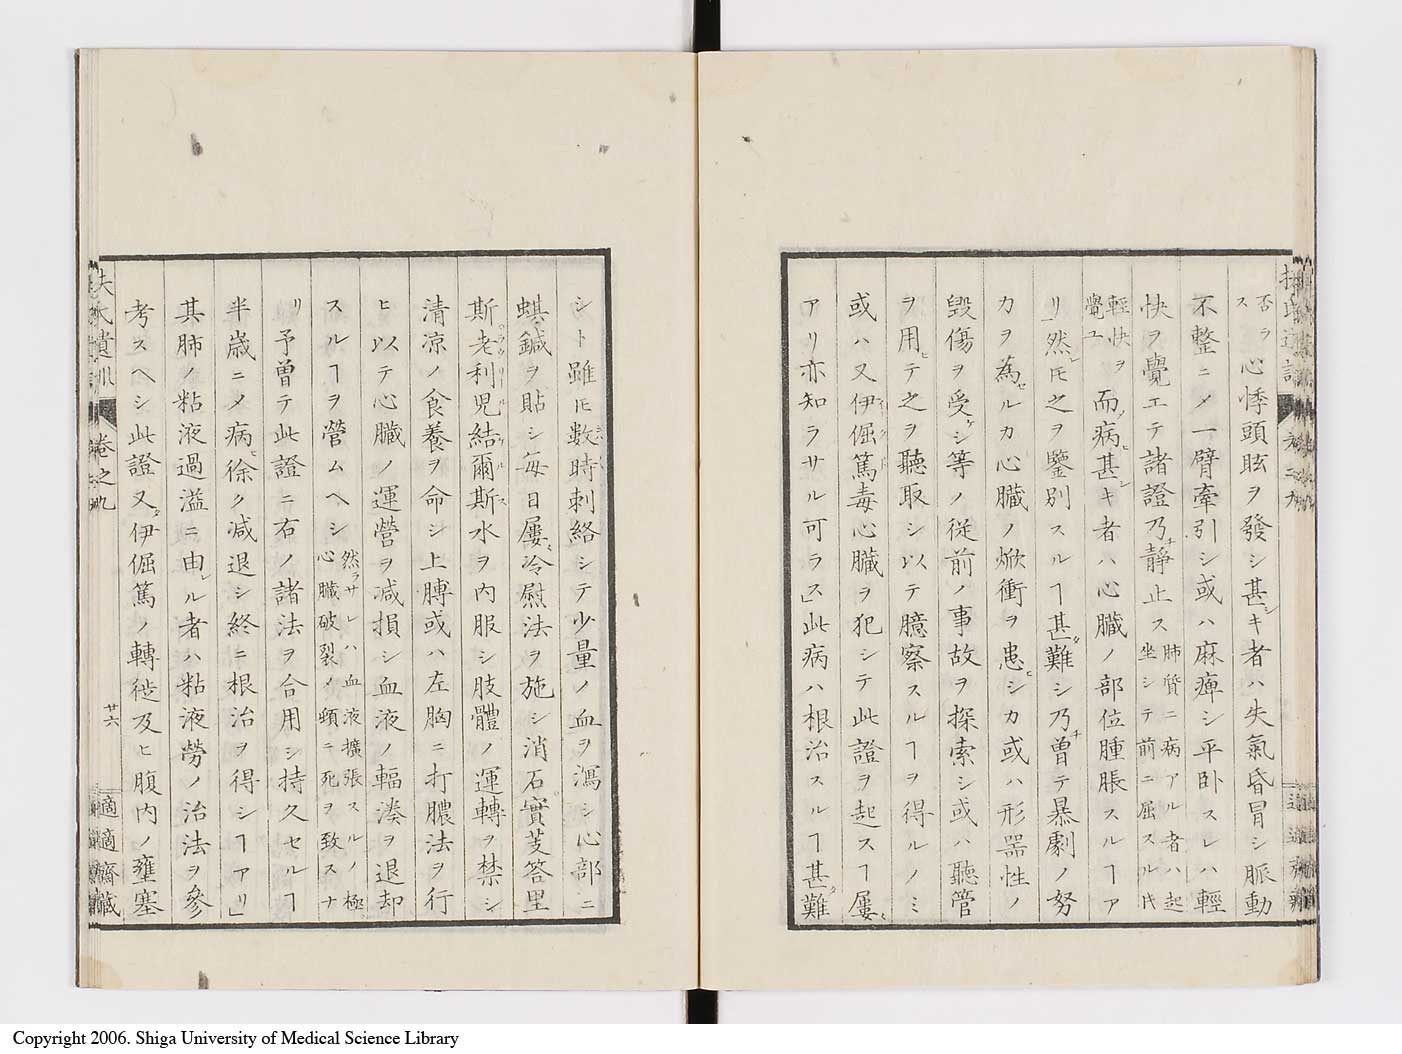 否ラス 心悸頭眩ヲ發シ甚シキ者ハ失氣昏冒シ脈動
不整ニメ一臂牽引シ或ハ麻痺シ平卧スレハ輕
快ヲ覺エテ諸證乃チ靜止ス 肺質ニ病アル者ハ起坐シテ前ニ屈スル片
輕快ヲ覺ユ 而ノ病甚シキ者ハ心臓ノ部位腫脹スルヿア
リ」然レ𪜈之ヲ鑒別スルヿ甚タ難シ乃チ曽テ暴劇ノ努
力ヲ為セルカ心臓ノ焮衝ヲ患ヒシカ或ハ形器性ノ
毀傷ヲ受ケシ等ノ従前ノ事故ヲ探索シ或ハ聽管
ヲ用ヒテ之ヲ聽取シ以テ臆察スルヿヲ得ルノミ
或ハ又伊倔篤毒心臓ヲ犯シテ此證ヲ起スヿ屢〻
アリ亦知ラサル可ラス」此病ハ根治スルヿ甚タ難
シト雖𪜈数〻時刺絡シテ少量ノ血ヲ瀉シ心部ニ
蜞鍼ヲ貼シ毎日屢〻冷慰法ヲ施シ消石實芰答里
斯老利児結爾斯水ヲ内服シ肢體ノ運轉ヲ禁シ
清凉ノ食養ヲ命シ上膊或ハ左胸ニ打膿法ヲ行
ヒ以テ心臓ノ運營ヲ減損シ血液ノ輻湊ヲ退却
スルヿヲ營ムヘシ 然ラサレハ血液擴張スルノ極心臓破裂ノ頓ニ死ヲ致スナ
リ 予曽テ此證ニ右ノ諸法ヲ合用シ持久セルヿ
半歳ニメ病ヒ徐ク減退シ終ニ根治ヲ得シヿアリ」
其肺ノ粘液過溢ニ由レル者ハ粘液勞ノ治法ヲ參
考スヘシ此證又タ伊倔篤ノ轉徙及ヒ腹内ノ壅塞
扶氏遺訓 卷之九
廿六
適適齋藏
Copyright 2006. Shiga University of Medical Science Library